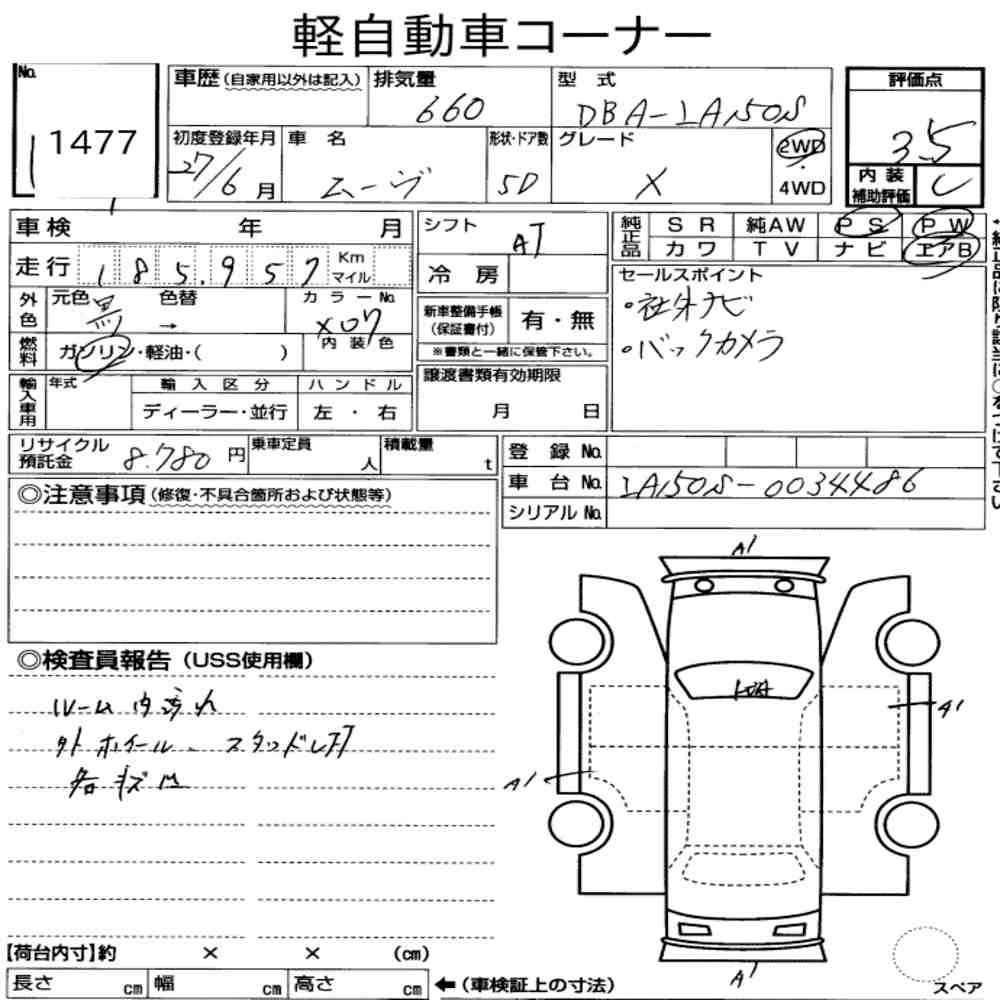 軽自動車コーナー
No. 1477
車歴(自家用以外は記入) 排気量 660 型式 DBA-LA150S 評価点 3.5
初度登録年月 27/6月 車名 ムーヴ 形状・ドア数 5D グレード X 2WD 4WD 内装補助評価 C
車検 年 月 シフト AT 純正品 SR 純AW PS PW
カワ TV ナビ エアB
走行 185,957 Km マイル 冷房
セールスポイント
・社外ナビ
・バックカメラ
外色 元色 黒 色替 → カラーNo. X07
新車整備手帳(保証書付) 有・無
※書類と一緒に保管下さい。
燃料 ガソリン・軽油・( ) 内装色
輸入車用 年式 輸入区分 ハンドル
ディーラー・並行 左・右
譲渡書類有効期限
月 日
リサイクル預託金 8.780円 乗車定員 人 積載量 t
登録No.
車台No. LA150S-0034486
シリアルNo.
◎注意事項(修復・不具合箇所および状態等)
◎検査員報告(USS使用欄)
ルーム内汚れ
外ホイール、スタッドレス
各キズ凹
A1
A1
A1
A1
【荷台内寸】約 × × (cm)
長さ cm 幅 cm 高さ cm ←(車検証上の寸法)
スペア